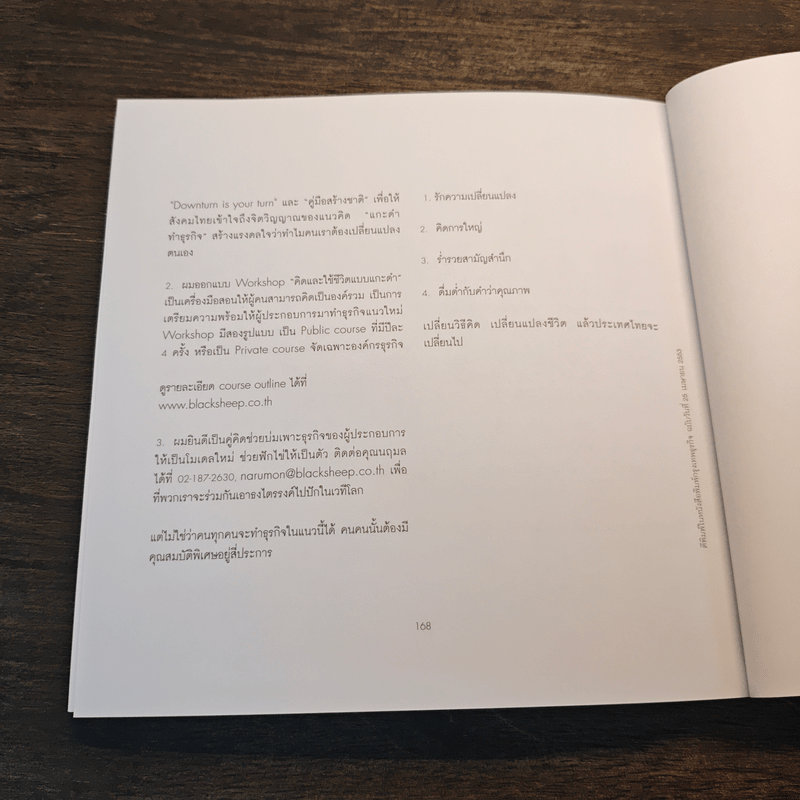 "Downturn is your turn" และ "คู่มือสร้างชาติ" เพื่อให้
สังคมไทยเข้าใจถึงจิตวิญญาณของแนวคิด "แกะดำ
ทำธุรกิจ" สร้างแรงดลใจว่าทำไมคนเราต้องเปลี่ยนแปลง
ตนเอง
2. ผมออกแบบ Workshop "คิดและใช้ชีวิตแบบแกะดำ"
เป็นเครื่องมือสอนให้ผู้คนสามารถคิดเป็นองค์รวม เป็นการ
เตรียมความพร้อมให้ผู้ประกอบการมาทำธุรกิจแนวใหม่
Workshop มีสองรูปแบบ เป็น Public course ที่มีปีละ
4 ครั้ง หรือเป็น Private course จัดเฉพาะองค์กรธุรกิจ
ดูรายละเอียด course outline ได้ที่
www.blacksheep.co.th
3. ผมยินดีเป็นคู่คิดช่วยบ่มเพาะธุรกิจของผู้ประกอบการ
ให้เป็นโมเดลใหม่ ช่วยฟักไข่ให้เป็นตัว ติดต่อคุณนฤมล
ได้ที่ 02-187-2630, narumon@blacksheep.co.th เพื่อ
ที่พวกเราจะร่วมกันเอาธงไตรรงค์ไปปักในเวทีโลก
แต่ไม่ใช่ว่าคนทุกคนจะทำธุรกิจในแนวนี้ได้ คนคนนั้นต้องมี
คุณสมบัติพิเศษอยู่สี่ประการ
1. รักความเปลี่ยนแปลง
2. คิดการใหญ่
3. ร่ำรวยสามัญสำนึก
4. ดื่มด่ำกับคำว่าคุณภาพ
เปลี่ยนวิธีคิด เปลี่ยนแปลงชีวิต แล้วประเทศไทยจะ
เปลี่ยนไป
ตีพิมพ์ในหนังสือพิมพ์กรุงเทพธุรกิจ ฉบับวันที่ 25 เมษายน 2553
168